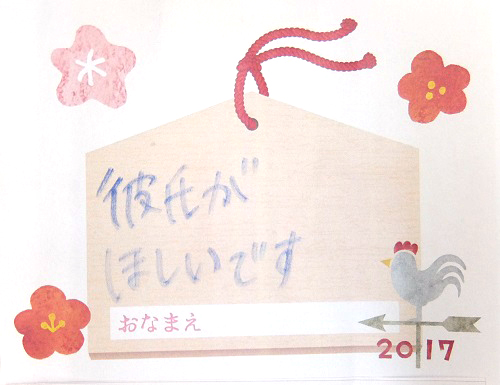 彼氏が
ほしいです
おなまえ
2017